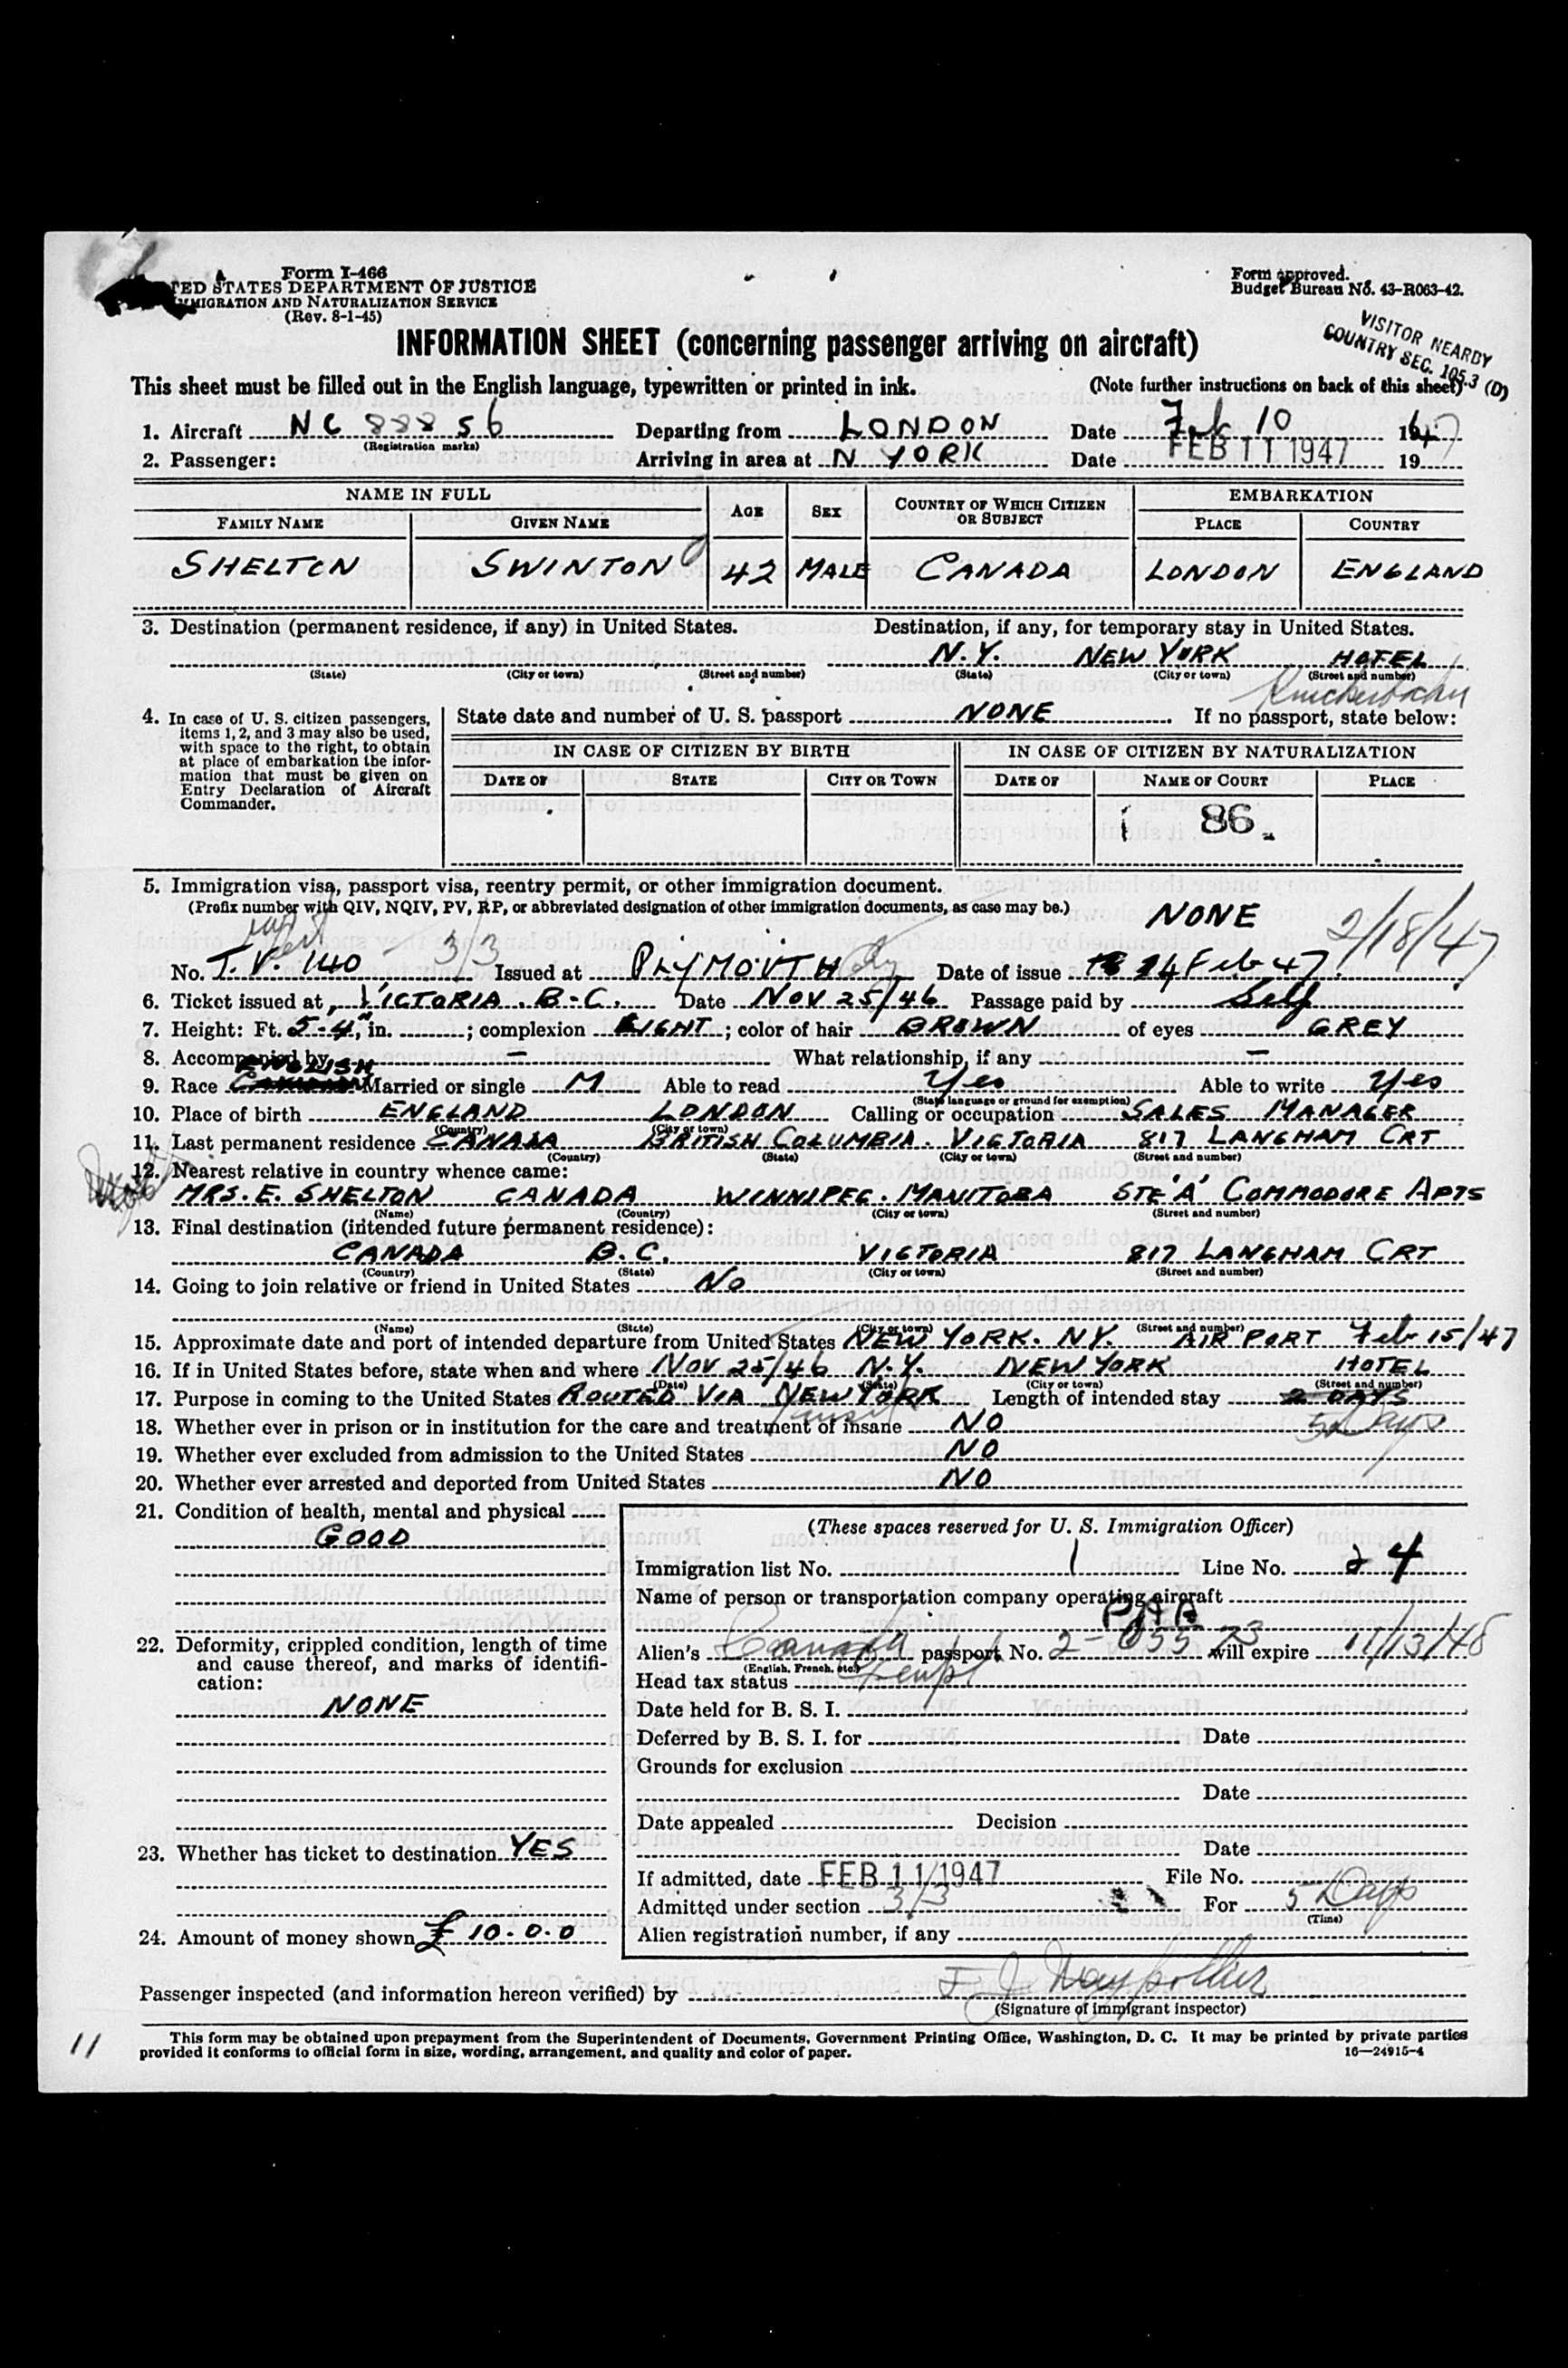 Form I-466
TED STATES DEPARTMENT OF JUSTICE
IMMIGRATION AND NATURALIZATION SERVICE
(Rev. 8-1-45)
Form approved.
Budget Bureau No. 43-R063-42.
VISITOR NEARBY
COUNTRY SEC. 105.3 (D)
INFORMATION SHEET (concerning passenger arriving on aircraft)
This sheet must be filled out in the English language, typewritten or printed in ink. (Note further instructions on back of this sheet)
1. Aircraft NC 88856 Departing from LONDON Date Feb 10 1947
(Registration marks)
2. Passenger: Arriving in area at N YORK Date FEB 11 1947 19
NAME IN FULL AGE SEX COUNTRY OF WHICH CITIZEN OR SUBJECT EMBARKATION
FAMILY NAME GIVEN NAME PLACE COUNTRY
SHELTON SWINTON 42 MALE CANADA LONDON ENGLAND
3. Destination (permanent residence, if any) in United States. Destination, if any, for temporary stay in United States.
N.Y. NEW YORK HOTEL
(State) (City or town) (Street and number) (State) (City or town) (Street and number)
Knickerbocker
4. In case of U. S. citizen passengers, items 1, 2, and 3 may also be used, with space to the right, to obtain at place of embarkation the information that must be given on Entry Declaration of Aircraft Commander.
State date and number of U. S. passport NONE If no passport, state below:
IN CASE OF CITIZEN BY BIRTH IN CASE OF CITIZEN BY NATURALIZATION
DATE OF STATE CITY OR TOWN DATE OF NAME OF COURT PLACE
86
5. Immigration visa, passport visa, reentry permit, or other immigration document.
(Prefix number with QIV, NQIV, PV, RP, or abbreviated designation of other immigration documents, as case may be.) NONE
2/18/47
3/3
No. T.V. 140 Issued at PLYMOUTH Date of issue 14 Feb 47
6. Ticket issued at VICTORIA. B.C. Date NOV 25/46 Passage paid by Self
7. Height: Ft. 5-4, in. ; complexion LIGHT ; color of hair BROWN of eyes GREY
8. Accompanied by — What relationship, if any —
9. Race ENGLISH Married or single M Able to read Yes Able to write Yes
(State language or ground for exemption)
10. Place of birth ENGLAND LONDON Calling or occupation SALES MANAGER
(Country) (City or town)
11. Last permanent residence CANADA BRITISH COLUMBIA. VICTORIA 817 LANGHAM CRT
(Country) (State) (City or town) (Street and number)
12. Nearest relative in country whence came:
MRS. E. SHELTON CANADA WINNIPEG. MANITOBA STE 'A' COMMODORE APTS
(Name) (Country) (City or town) (Street and number)
13. Final destination (intended future permanent residence):
CANADA B.C. VICTORIA 817 LANGHAM CRT
(Country) (State) (City or town) (Street and number)
14. Going to join relative or friend in United States No
(Name) (State) (City or town) (Street and number)
15. Approximate date and port of intended departure from United States NEW YORK. NY. AIR PORT Feb 15/47
16. If in United States before, state when and where NOV 25/46 N.Y. NEW YORK HOTEL
(Date) (State) (City or town) (Street and number)
17. Purpose in coming to the United States ROUTED VIA NEW YORK Length of intended stay 2 DAYS
transit 5 Days
18. Whether ever in prison or in institution for the care and treatment of insane NO
19. Whether ever excluded from admission to the United States NO
20. Whether ever arrested and deported from United States NO
21. Condition of health, mental and physical
GOOD
22. Deformity, crippled condition, length of time and cause thereof, and marks of identification:
NONE
23. Whether has ticket to destination YES
24. Amount of money shown £ 10.0.0
(These spaces reserved for U. S. Immigration Officer)
Immigration list No. 1 Line No. 4
Name of person or transportation company operating aircraft
PAA
Alien's Canada passport No. 2-05573 will expire 11/13/48
(English, French, etc.)
Head tax status Exempt
Date held for B. S. I.
Deferred by B. S. I. for Date
Grounds for exclusion
Date
Date appealed Decision
Date
If admitted, date FEB 11 1947 File No.
Admitted under section 3/3 For 5 Days
(Time)
Alien registration number, if any
Passenger inspected (and information hereon verified) by
(Signature of immigrant inspector)
11
This form may be obtained upon prepayment from the Superintendent of Documents, Government Printing Office, Washington, D. C. It may be printed by private parties
provided it conforms to official form in size, wording, arrangement, and quality and color of paper. 16—24915-4